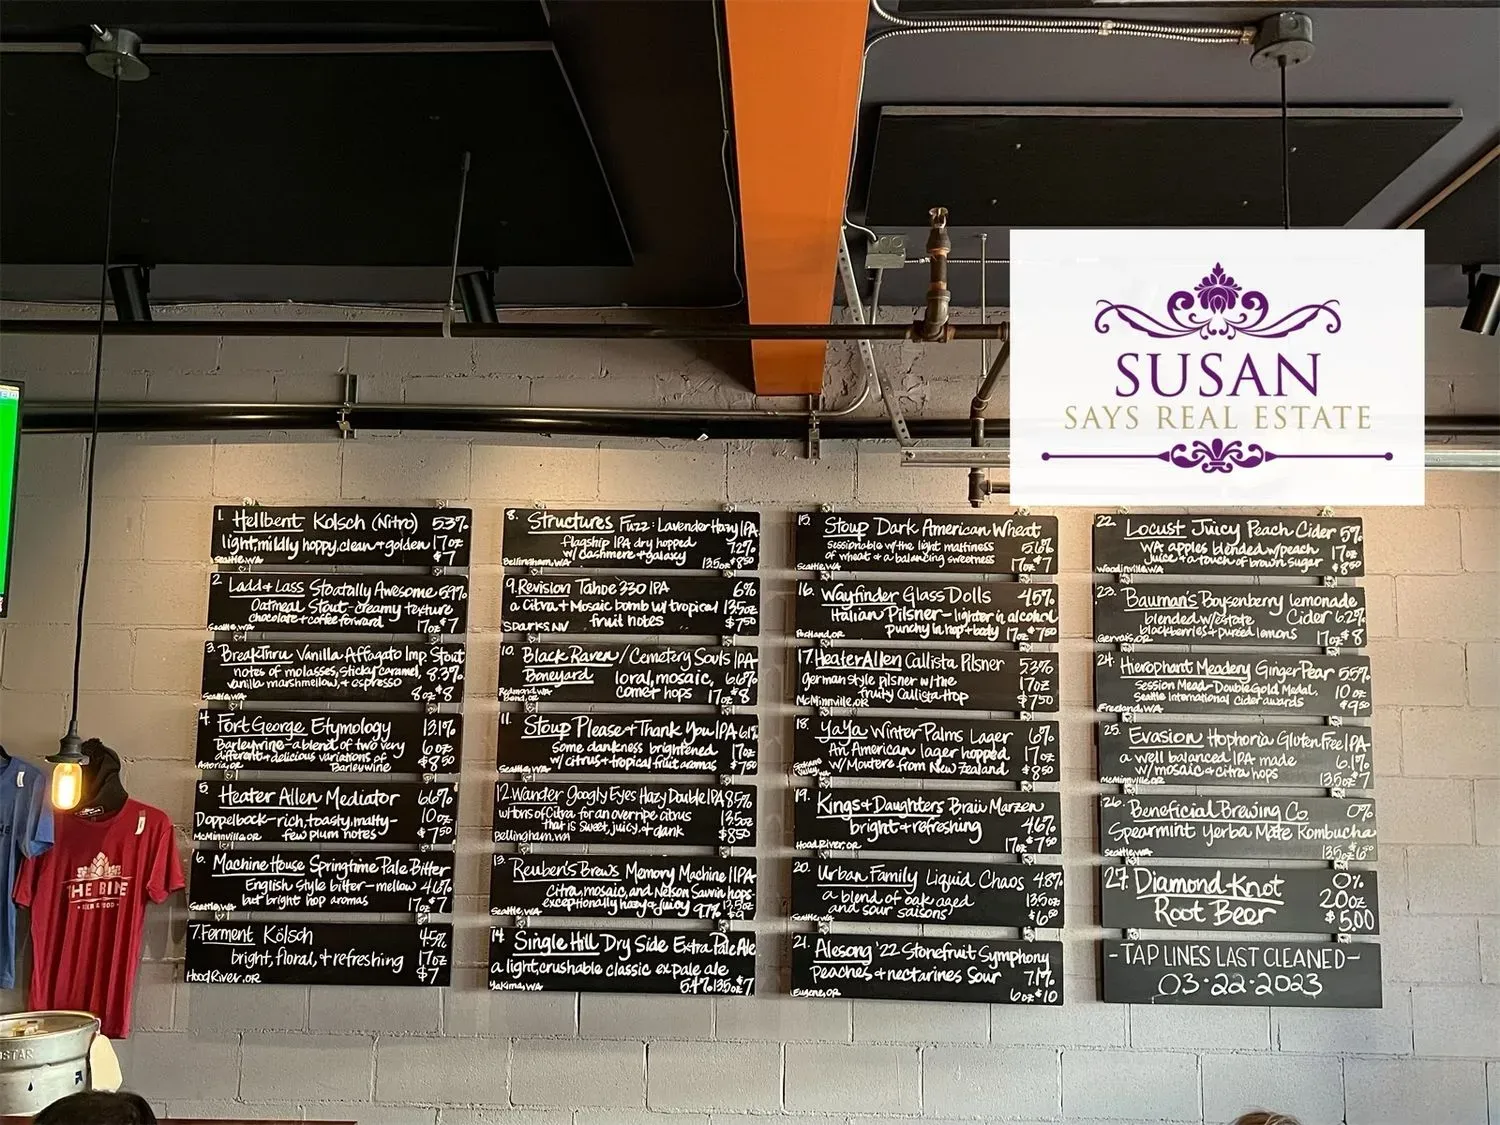 SUSAN
SAYS REAL ESTATE
1. Hellbent Kolsch (Nitro) 5.3%
light, mildly hoppy, clean + golden 17oz
Seattle, WA $7
2. Ladd + Lass Stoatally Awesome 5.9%
Oatmeal Stout - creamy texture
chocolate + coffee forward
Seattle, WA 17oz $7
3. BreakThru Vanilla Affogato Imp. Stout
notes of molasses, sticky caramel, 8.3%
vanilla marshmellow, + espresso
Seattle, WA 8oz $8
4. Fort George Etymology 13.1%
Barleywine - a blend of two very 6oz
different + delicious variations of $8.50
Astoria, OR Barleywine
5. Heater Allen Mediator 6.6%
Doppelbock - rich, toasty, malty - 10oz
McMinnville, OR few plum notes $7.50
6. Machine House Springtime Pale Bitter
English style bitter - mellow 4.6%
but bright hop aromas
Seattle, WA 17oz $7
7. Ferment Kölsch 4.5%
bright, floral, + refreshing 17oz
Hood River, OR $7
8. Structures Fuzz: Lavender Hazy IPA
flagship IPA dry hopped 7.2%
w/ cashmere + galaxy
Bellingham, WA 13.5oz $8.50
9. Revision Tahoe 330 IPA 6%
a Citra + Mosaic bomb w/ tropical 13.5oz
Sparks, NV fruit notes $7.50
10. Black Raven / Cemetery Souls IPA
Boneyard loral, mosaic, 6.6%
Redmond, WA comet hops 17oz $8
Bend, OR
11. Stoup Please + Thank You IPA 6.1%
Some dankness brightened 17oz
w/ citrus + tropical fruit aromas $7.50
Seattle, WA
12. Wander Googly Eyes Hazy Double IPA 8.5%
w/ tons of Citra for an overripe citrus 13.5oz
that is sweet, juicy, + dank $8.50
Bellingham, WA
13. Reuben's Brews Memory Machine IIPA
Citra, mosaic, and Nelson Sauvin hops -
exceptionally hazy + juicy 9.7% 13.5oz
Seattle, WA $9
14. Single Hill Dry Side Extra Pale Ale
a light, crushable classic ex pale ale
Yakima, WA 5.4% 13.5oz $7
15. Stoup Dark American Wheat
sessionable w/ the light maltiness 5.6%
of wheat + a balancing sweetness
Seattle, WA 17oz $7
16. Wayfinder Glass Dolls 4.5%
Italian Pilsner - lighter in alcohol
punchy in hop + body
Portland, OR 17oz $7.50
17. Heater Allen Callista Pilsner 5.3%
german style pilsner w/ the 17oz
fruity Callista Hop $7.50
McMinnville, OR
18. YaYa Winter Palms Lager 6%
An American lager hopped 17oz
w/ Moutere from New Zealand $8.50
Spokane Valley, WA
19. Kings + Daughters Braiii Marzen
bright + refreshing 4.6%
Hood River, OR 17oz $7.50
20. Urban Family Liquid Chaos 4.8%
a blend of oak aged 13.5oz
and sour saisons $6.50
Seattle, WA
21. Alesong '22 Stonefruit Symphony
peaches + nectarines sour 7.1%
Eugene, OR 6oz $10
22. Locust Juicy Peach Cider 5%
WA apples blended w/ peach 17oz
juice + a touch of brown sugar $8.50
Woodinville, WA
23. Bauman's Boysenberry lemonade
blended w/ estate Cider 6.2%
blackberries + pureed lemons
Gervais, OR 17oz $8
24. Hierophant Meadery Ginger Pear 5.5%
Session Mead - Double Gold Medal, 10oz
Seattle International Cider awards $9.50
Freeland, WA
25. Evasion Hophoria Gluten Free IPA
a well balanced IPA made 6.1%
w/ mosaic + citra hops
McMinnville, OR 13.5oz $7
26. Beneficial Brewing Co. 0%
Spearmint Yerba Mate Kombucha
Seattle, WA 13.5oz $6.50
27. Diamond Knot 0%
Root Beer 20oz
$5.00
- TAP LINES LAST CLEANED -
03·22·2023
THE BINE
BEER & FOOD